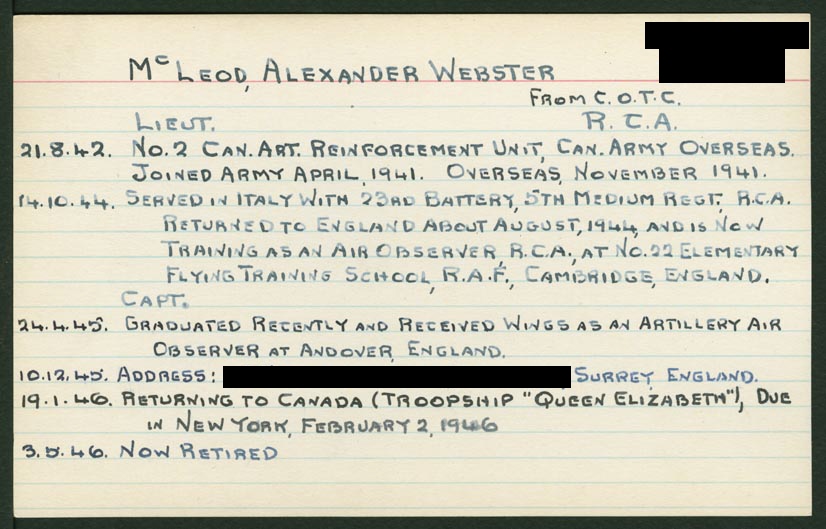 McLEOD, ALEXANDER WEBSTER
FROM C.O.T.C.
LIEUT. R.C.A.
21.8.42. NO.2 CAN. ART. REINFORCEMENT UNIT, CAN. ARMY OVERSEAS.
JOINED ARMY APRIL, 1941. OVERSEAS, NOVEMBER 1941.
14.10.44. SERVED IN ITALY WITH 23RD BATTERY, 5TH MEDIUM REGT., R.C.A.
RETURNED TO ENGLAND ABOUT AUGUST, 1944, AND IS NOW
TRAINING AS AN AIR OBSERVER, R.C.A., AT NO.22 ELEMENTARY
FLYING TRAINING SCHOOL, R.A.F., CAMBRIDGE, ENGLAND.
CAPT.
24.4.45. GRADUATED RECENTLY AND RECEIVED WINGS AS AN ARTILLERY AIR
OBSERVER AT ANDOVER, ENGLAND.
10.12.45. ADDRESS: SURREY, ENGLAND.
19.1.46. RETURNING TO CANADA (TROOPSHIP "QUEEN ELIZABETH"), DUE
IN NEW YORK, FEBRUARY 2, 1946
3.5.46. NOW RETIRED